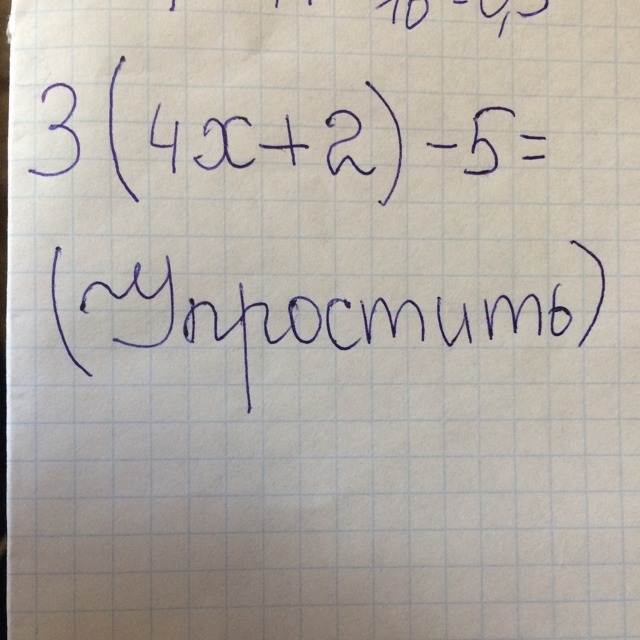 3(4x+2)-5=
(Упростить)